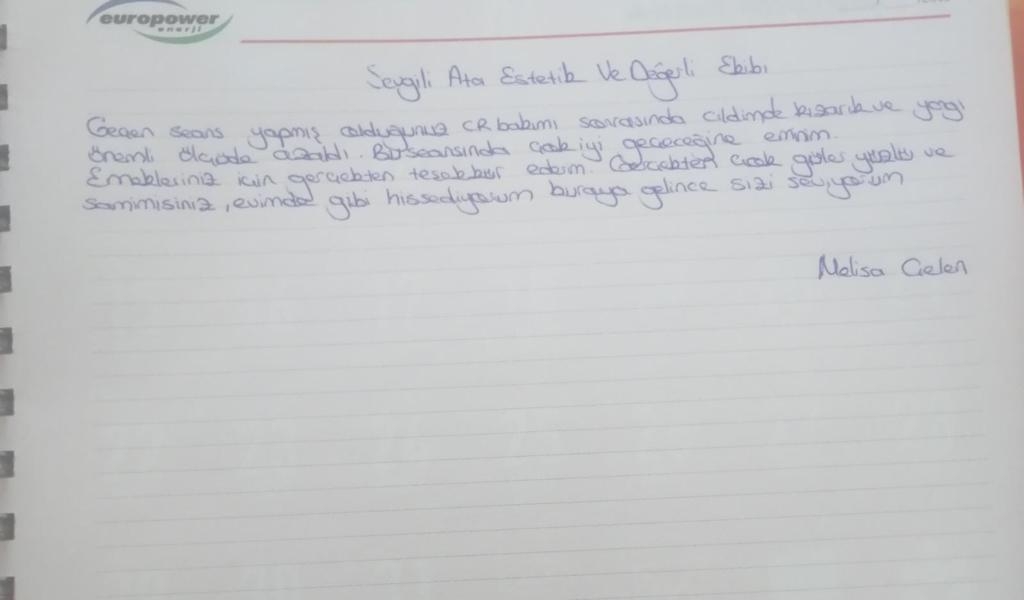 europower
enerji
Sevgili Ata Estetik Ve Değerli Ekibi
Geçen seans yapmış olduğunuz CR bakımı sonrasında cildimde kızarık ve yangı
önemli ölçüde azaldı. Bu seansında çok iyi geçeceğine eminim.
Emekleriniz için gerçekten teşekkür ederim. Gerçekten çok güler yüzlü ve
samimisiniz, evimde gibi hissediyorum buraya gelince sizi seviyorum
Melisa Gelen